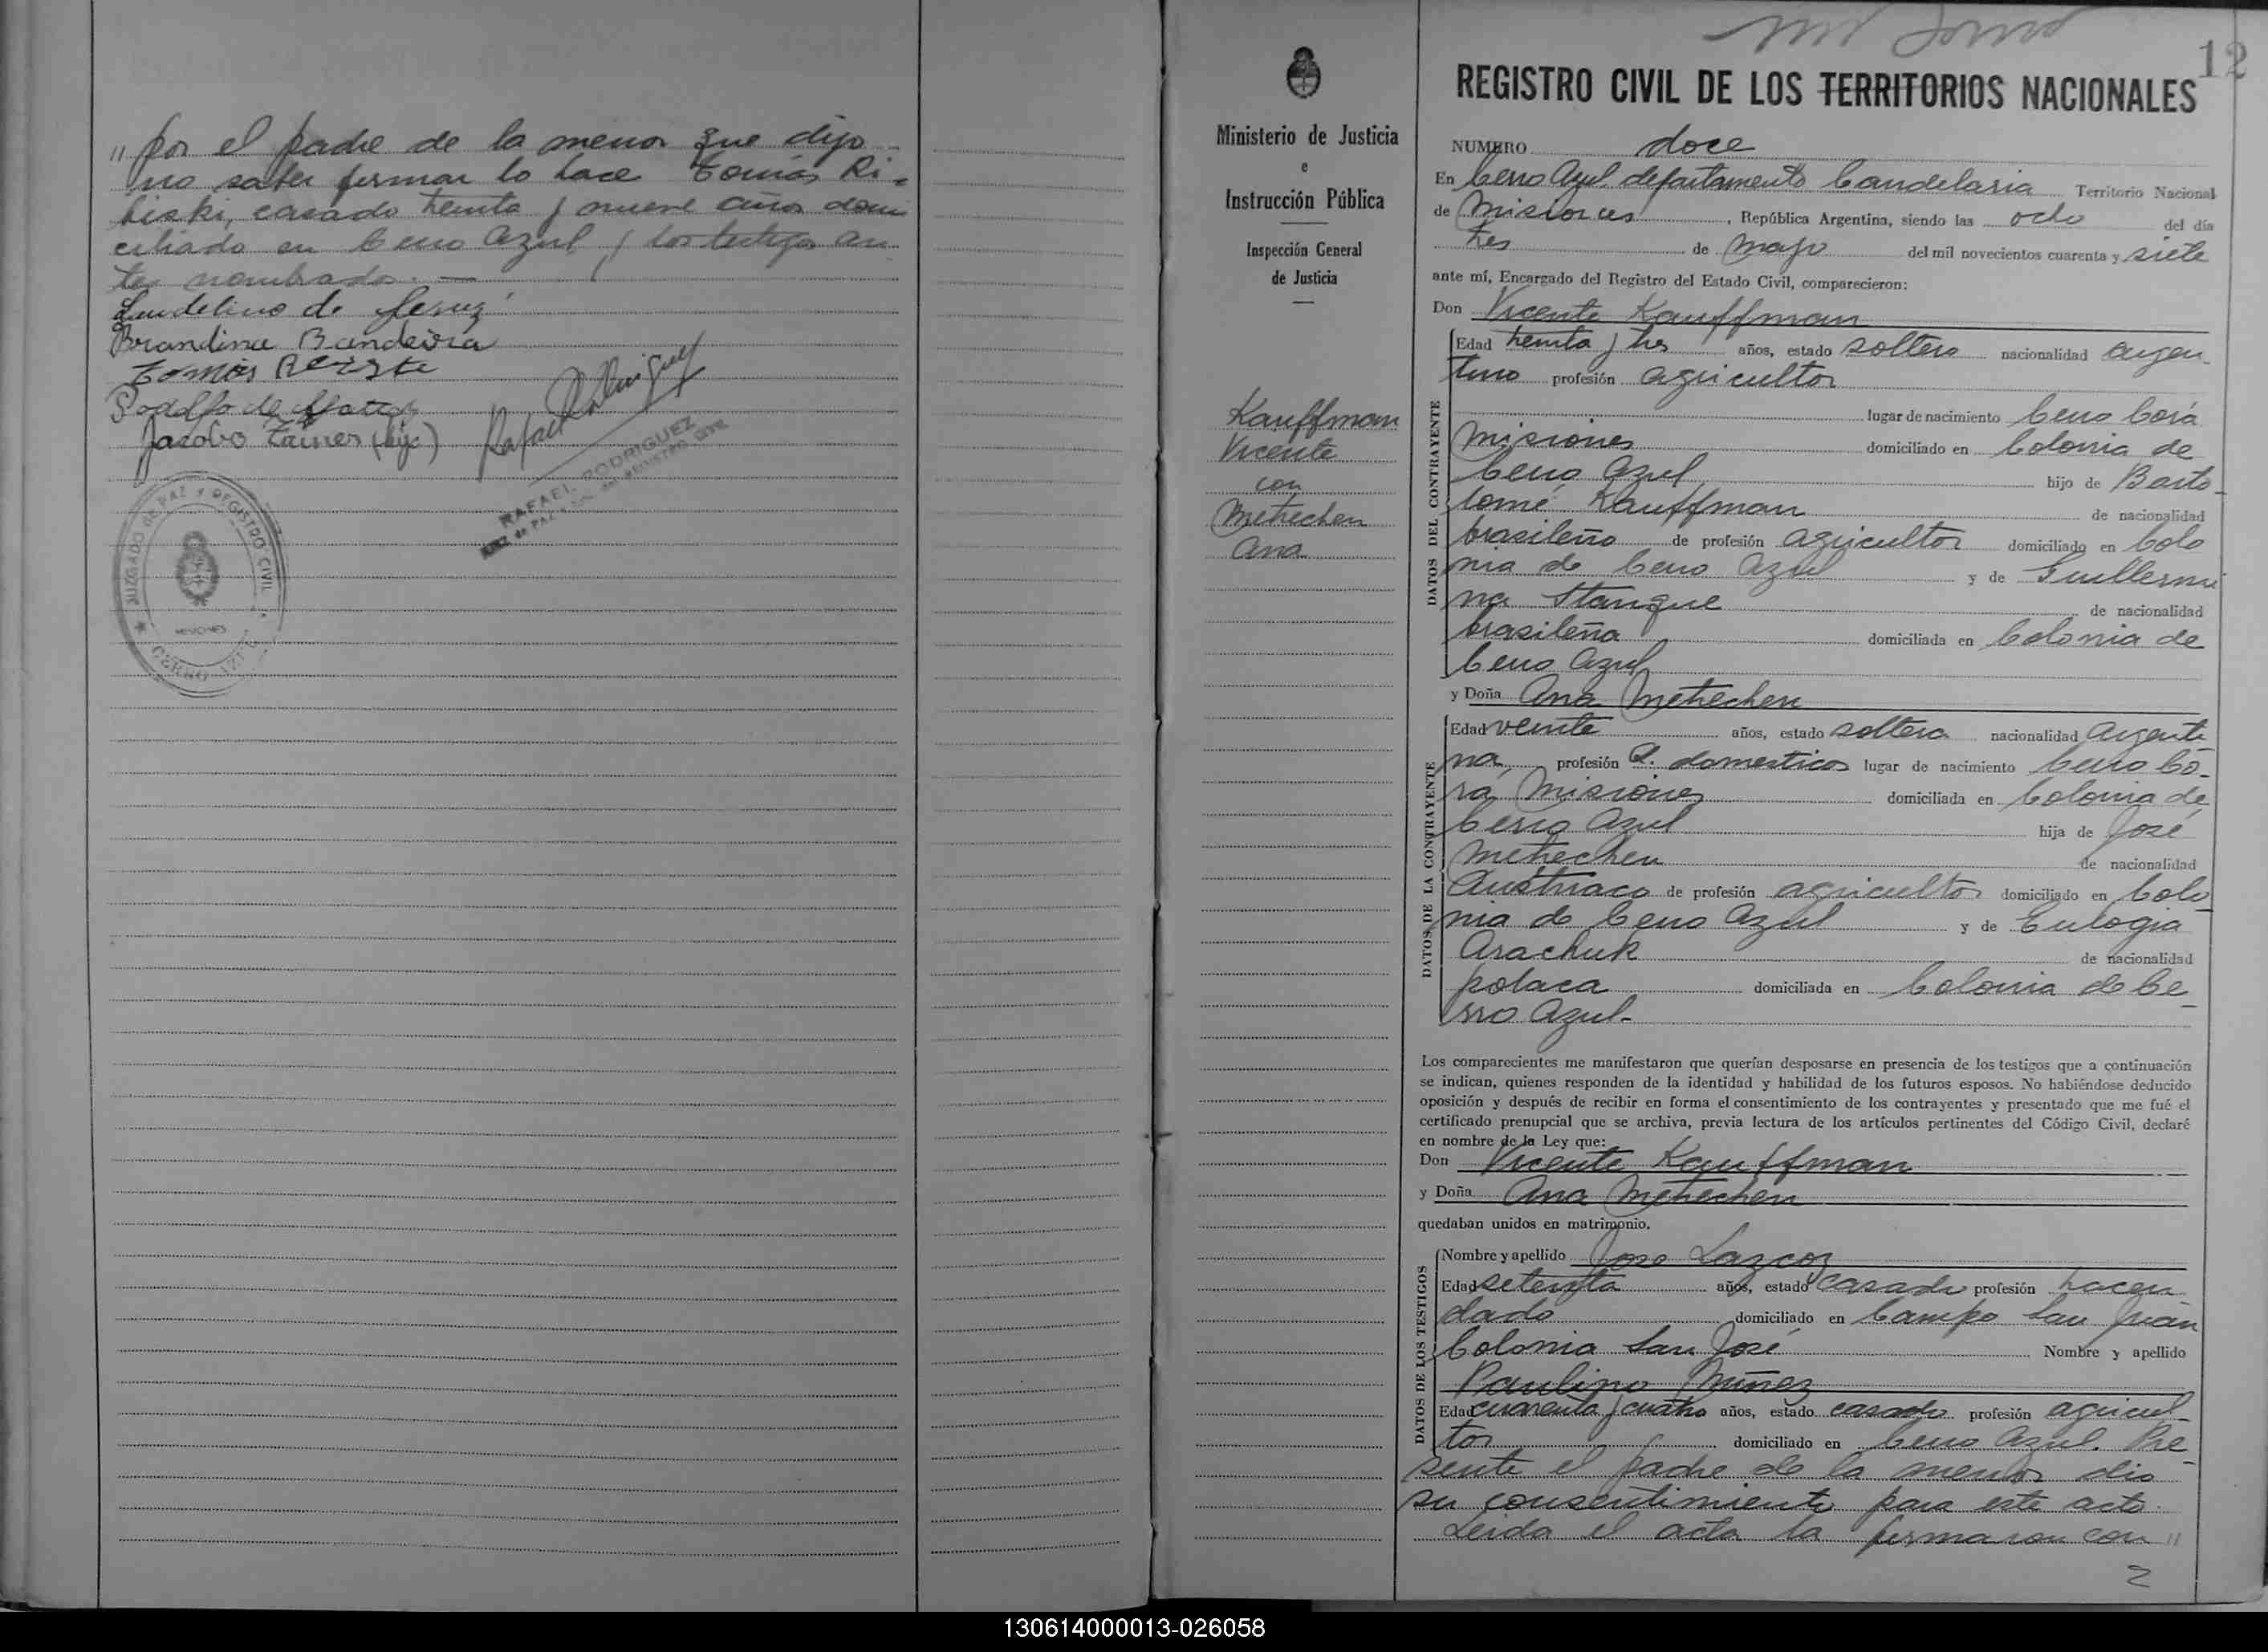 " por el padre de la menor que dijo
no saber firmar lo hace Tomás Ri-
biski, casado treinta y nueve años domi
ciliado en Cerro Azul y los testigos an
tes nombrados. —
Laudelino de
Brandina Bandeira
Tomas
Rodolfo de
Jacobo (hijo)
RAFAEL RODRIGUEZ
JUEZ de PAZ
JUZGADO de PAZ Y REGISTRO CIVIL
MISIONES
CERRO AZUL
12
REGISTRO CIVIL DE LOS TERRITORIOS NACIONALES
Ministerio de Justicia
e
Instrucción Pública
Inspección General
de Justicia
Kauffman
Vicente
con
Metrechen
Ana
NUMERO doce
En Cerro Azul departamento Candelaria Territorio Nacional
de Misiones, República Argentina, siendo las ocho del día
tres de Mayo del mil novecientos cuarenta y siete
ante mí, Encargado del Registro del Estado Civil, comparecieron:
Don Vicente Kauffman
DATOS DEL CONTRAYENTE
Edad treinta y tres años, estado soltero nacionalidad argen
tino profesión agricultor
lugar de nacimiento Cerro Corá
Misiones domiciliado en Colonia de
Cerro Azul hijo de Barto-
lomé Kauffman de nacionalidad
brasileño de profesión agricultor domiciliado en Colo
nia de Cerro Azul y de Guillermi
na Stanque de nacionalidad
brasileña domiciliada en Colonia de
Cerro Azul
y Doña Ana Metrechen
DATOS DE LA CONTRAYENTE
Edad veinte años, estado soltera nacionalidad Argenti
na, profesión Q. domesticos lugar de nacimiento Cerro Co-
rá Misiones domiciliada en Colonia de
Cerro Azul hija de José
Metrechen de nacionalidad
Austriaco de profesión agricultor domiciliado en Colo
nia de Cerro Azul y de Eulogia
Arachuk de nacionalidad
polaca domiciliada en Colonia de Ce-
rro Azul-
Los comparecientes me manifestaron que querían desposarse en presencia de los testigos que a continuación
se indican, quienes responden de la identidad y habilidad de los futuros esposos. No habiéndose deducido
oposición y después de recibir en forma el consentimiento de los contrayentes y presentado que me fué el
certificado prenupcial que se archiva, previa lectura de los artículos pertinentes del Código Civil, declaré
en nombre de la Ley que:
Don Vicente Kauffman
y Doña Ana Metrechen
quedaban unidos en matrimonio.
DATOS DE LOS TESTIGOS
Nombre y apellido Jose Lazcoz
Edad setenta años, estado casado profesión hacen
dado domiciliado en Campo San Juan
Colonia San José Nombre y apellido
Paulino Núnez
Edad cuarenta y cuatro años, estado casado profesión agricul-
tor domiciliado en Cerro Azul. Pre-
sente el padre de la menor dió
su consentimiento para este acto.
Leida el acta la firmaron con "
2
130614000013-026058